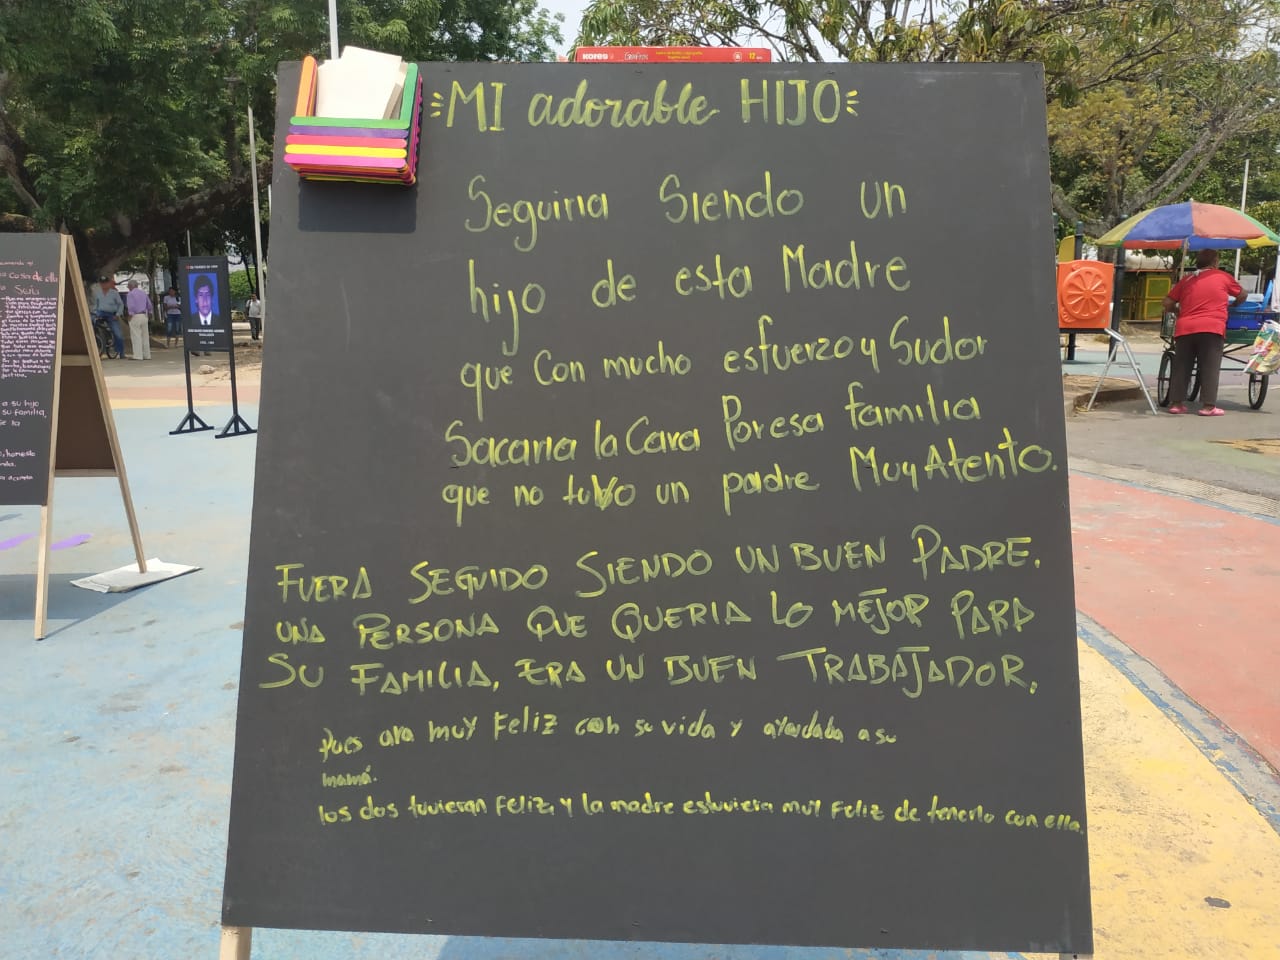 MI adorable HIJO
Seguiria Siendo un
hijo de esta Madre
que Con mucho esfuerzo y Sudor
Sacaria la Cara Poresa familia
que no tuvo un padre Muy Atento.
FUERA SEGUIDO SIENDO UN BUEN PADRE.
UNA PERSONA QUE QUERIA LO MEJOR PARA
SU FAMILIA, ERA UN BUEN TRABAJADOR.
pues ara muy Feliz con su vida y ayudaba a su
mamá.
los dos tuvieran Feliz, y la madre estuviera muy Feliz de tenerlo con ella.
Kores
12
Casa de ella
a su hijo
su familia,